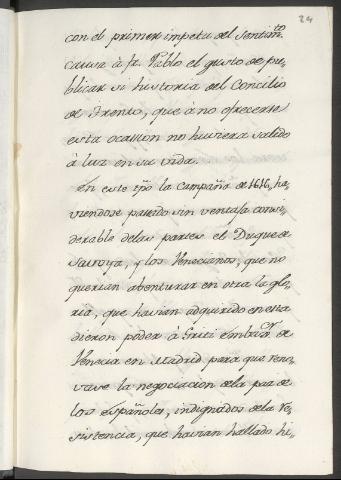 24
con el primer impetu del sentim.to
causa à fr. Pablo el gusto de pu-
blicar su historia del Concilio
de Trento, que à no ofrecerse
esta ocassion no huviera salido
à luz en su vida.
En este tpō la campaña de 1616, ha-
viendose passado sin ventaja consi-
derable de las partes el Duque de
Saboya, y los Venecianos, que no
querian abenturar en otra la glo-
ria, que havian adquirido en esta
dieron poder à Griti Embax.or de
Venecia en Madrid para que reno-
vase la negociacion de la paz
los Españoles, indignados de la re-
sistencia, que havian hallado hi-